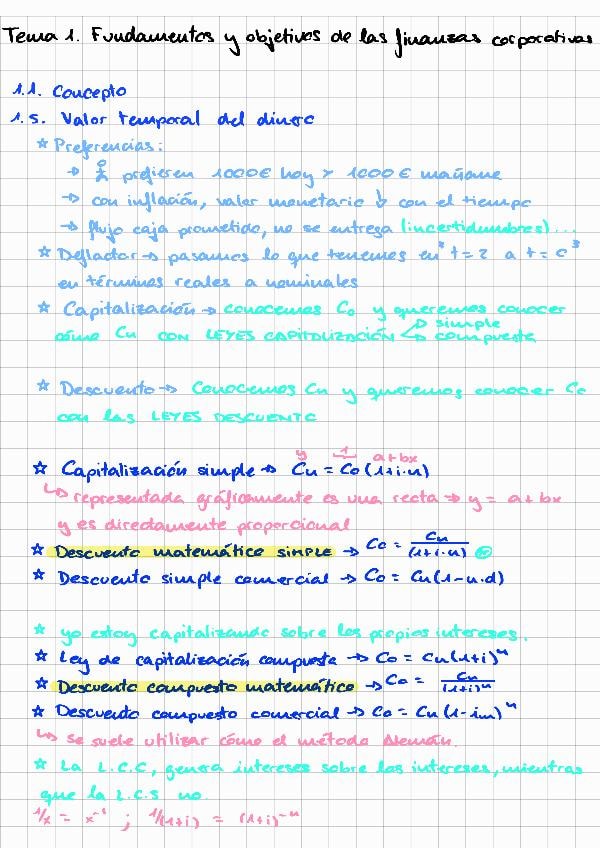 Tema 1. Fundamentos y objetivos de las finanzas corporativas
1.1. Concepto
1.5. Valor temporal del dinero
☆ Preferencias:
→ prefieren 1000€ hoy > 1000€ mañana
→ con inflación, valor monetario ↓ con el tiempo
→ flujo caja prometido, no se entrega (incertidumbres)...
☆ Deflactor → pasamos lo que tenemos en t=2 a t=0
en términos reales a nominales
☆ Capitalización → conocemos Co y queremos conocer
cómo Cn CON LEYES CAPITALIZACIÓN simple
compuesta
☆ Descuento → Conocemos Cn y queremos conocer Co
con las LEYES DESCUENTO
y 1 a+bx
☆ Capitalización simple → Cn = Co(1+i·n)
↳ representada gráficamente es una recta ⇒ y = a+bx
y es directamente proporcional
☆ Descuento matemático simple → Co = Cn/(1+i·n)
☆ Descuento simple comercial → Co = Cn(1-n·d)
☆ yo estoy capitalizando sobre los propios intereses.
☆ Ley de capitalización compuesta → Co = Cn(1+i)ⁿ
☆ Descuento compuesto matemático → Co = Cn/(1+i)ⁿ
☆ Descuento compuesto comercial → Co = Cn(1-im)ⁿ
↳ se suele utilizar cómo el método Alemán.
☆ La L.C.C, genera intereses sobre los intereses, mientras
que la L.C.S no.
1/x = x⁻¹ ; 1/(1+i) = (1+i)⁻ⁿ